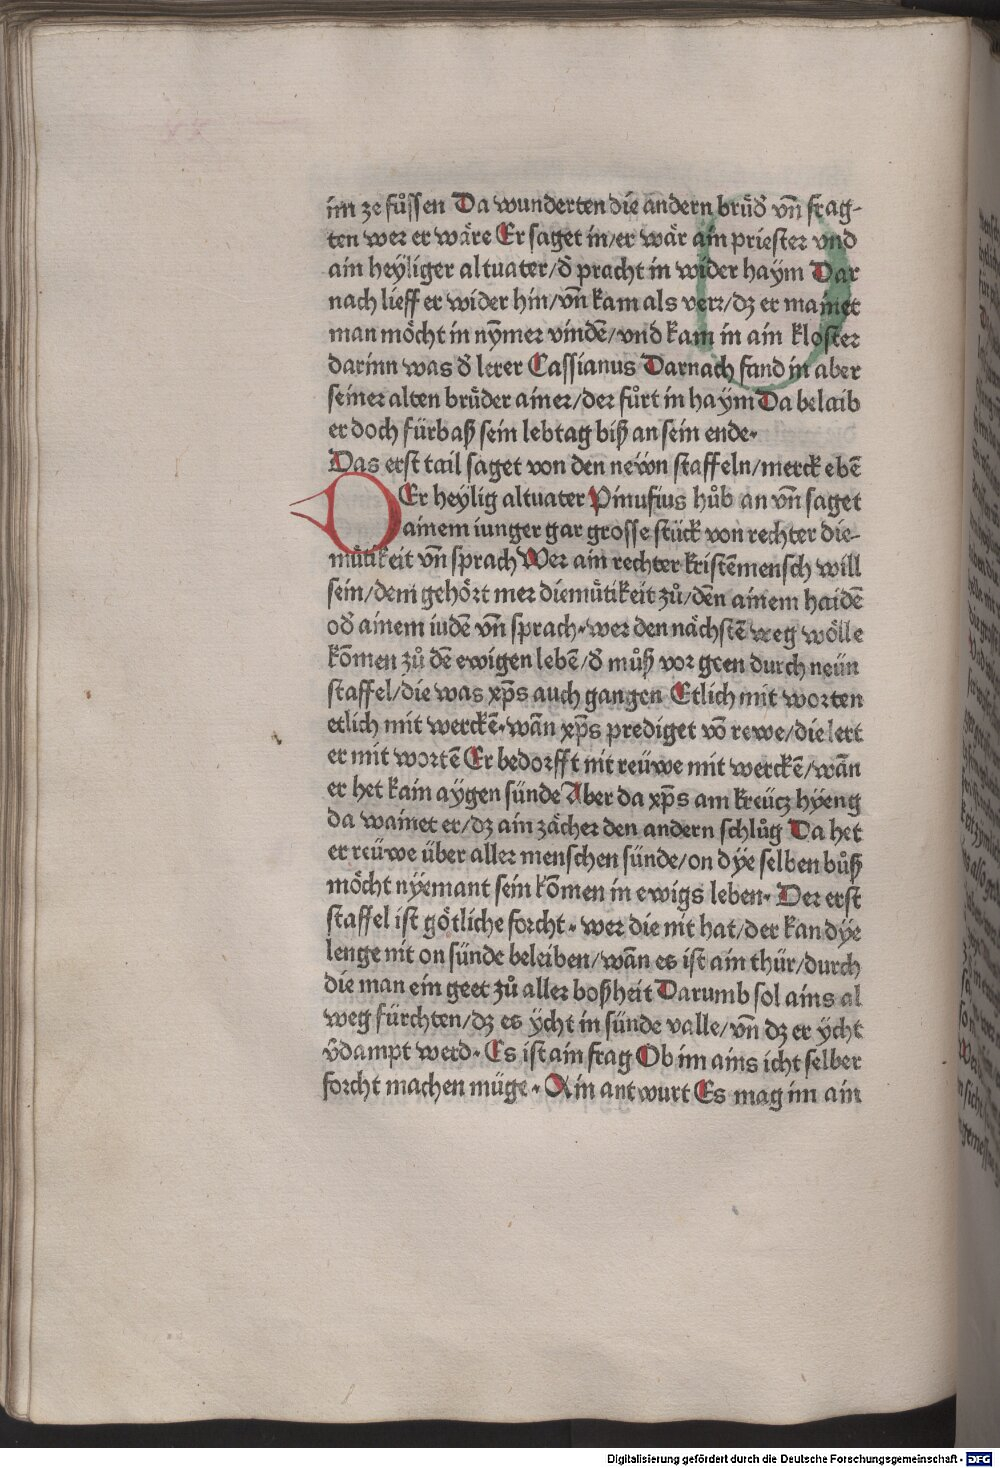 im ze fuͦssen Da wunderten die andern bruͤđ vn̄ frag-
ten wer er wäre Er saget in/er wär ain priester vnd
ain heyliger altuater/đ pracht in wider haym Dar
nach lieff er wider hin/vn̄ kam als verr/dz er mainet
man moͤcht in nȳmer vindē/vnd kam in ain kloster
darinn was đ lerer Cassianus Darnach fand in aber
seiner alten bruͤder ainer/der fuͦrt in haym Da belaib
er doch fürbaß sein lebtag biß an sein ende·
Das erst tail saget von den newn staffeln/merck ebē
DEr heylig altuater Pinufius huͦb an vn̄ saget
ainem iunger gar grosse stück von rechter die-
muͤtikeit vn̄ sprach Wer ain rechter kristēmensch will
sein/dem gehoͤrt mer diemuͤtikeit zuͦ/den ainem haidē
ođ ainem iudē vn̄ sprach·wer den nächstē weg woͤlle
kōmen zuͦ dē ewigen lebē/đ muͦß vor geen durch neün
staffel/die was xp̄s auch gangen Etlich mit worten
etlich mit werckē·wān xp̄s prediget vō rewe/die lert
er mit wortē Er bedorfft nit reüwe mit werckē/wān
er het kain aygen sünde Aber da xp̄s am kreücz hyeng
da wainet er/dz ain zächer den andern schluͦg Da het
er reüwe über aller menschen sünde/on dye selben buͦß
moͤcht nyemant sein kōmen in ewigs leben· Der erst
staffel ist goͤtliche forcht·wer die nit hat/der kan dye
lenge nit on sünde beleiben/wān es ist ain thür/durch
die man ein geet zuͦ aller boßheit Darumb sol ains al
weg fürchten/dz es ycht in sünde valle/vn̄ dz er ycht
v̄dampt werd·Es ist ain frag Ob im ains icht selber
forcht machen müge·Ain antwurt Es mag im ain
Digitalisierung gefördert durch die Deutsche Forschungsgemeinschaft - DFG